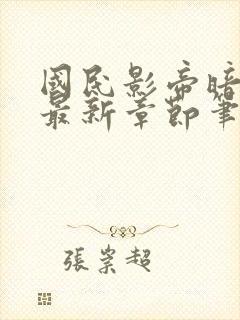 國民影帝暗
最新章節筆
張崇超